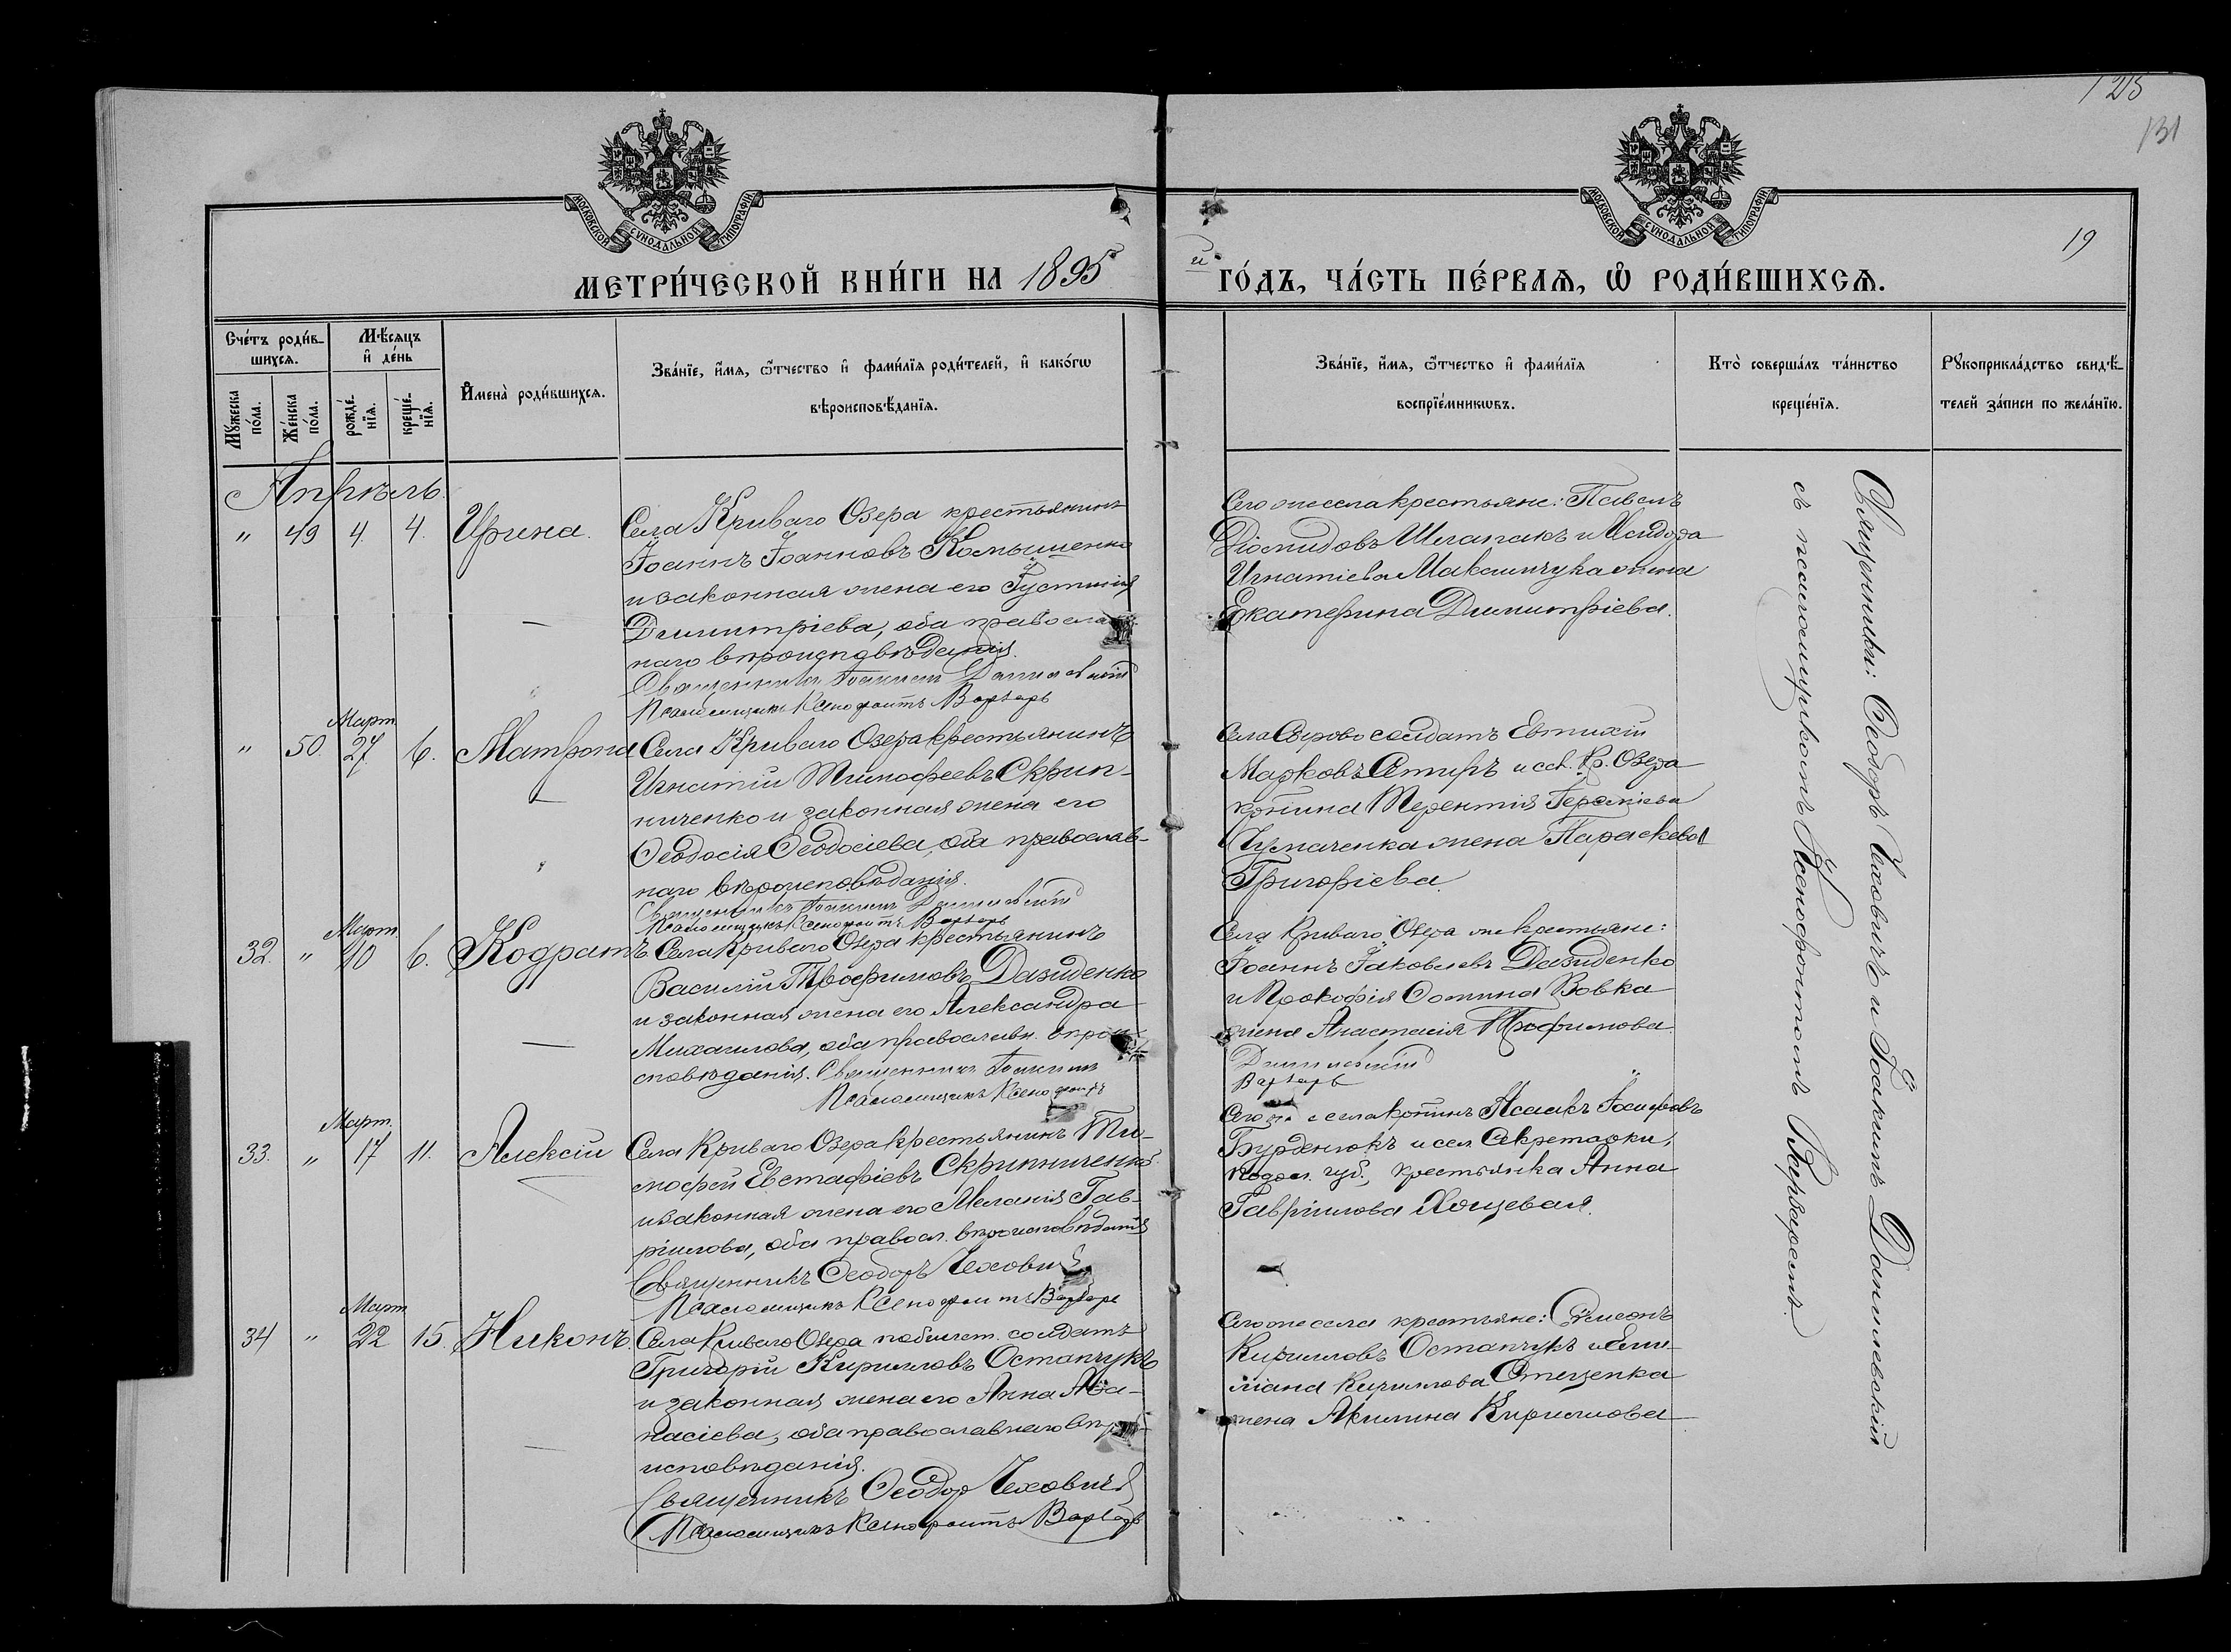 125
131
19
МОСКОВСКОЙ СУНОДАЛЬНОЙ ТИПОГРАФІИ
МОСКОВСКОЙ СУНОДАЛЬНОЙ ТИПОГРАФІИ
МЕТРИ́ЧЕСКОЙ КНИ́ГИ НА 1895
й ГО́ДЪ, ЧА́СТЬ ПЕ́РВАѦ, Ѿ РОДИ́ВШИХСѦ.
Сче́тъ роди́в-
шихсѧ.
Мѣ́сѧцъ
и҆ де́нь
Мꙋ́жеска
по́ла.
Же́нска
по́ла.
рожде́-
нїѧ.
креще́-
нїѧ.
И҆мена̀ роди́вшихсѧ.
Зва́нїе, и҆́мѧ, ѿ́чество и҆ фами́лїѧ роди́телей, и҆ како́гѡ
вѣроисповѣ́данїѧ.
Зва́нїе, и҆́мѧ, ѿ́чество и҆ фами́лїѧ
воспрїе́мникѡвъ.
Кто̀ соверша́лъ та́инство
креще́нїѧ.
Рꙋкоприкла́дство свидѣ́-
телей за́писи по жела́нїю.
Апрѣль.
" 49 4. 4. Ирина.
Села Криваго Озера крестьянинъ
Іоаннъ Іоанновъ Комышенко
и законная жена его Іустинія
Димитріева, оба православ-
наго вѣроисповѣданія.
Священникъ Іоакимъ Данилевскій
Псаломщикъ Ксенофонтъ Варварь
Сего же села крестьяне: Павелъ
Діомидовъ Шлапакъ и Исидора
Игнатіева Максимчука жена
Екатерина Димитріева.
Март.
" 50. 27 6. Матрона
Села Криваго Озера крестьянинъ
Игнатій Тимофеевъ Скрип-
ниченко и законная жена его
Ѳеодосія Ѳеодосіева, оба православ-
наго вѣроисповѣданія.
Священникъ Іоакимъ Данилевскій
Псаломщикъ Ксенофонтъ Варварь
Села солдатъ Евтихій
Марковъ и сел. Кр. Озера
Терентія
Чумаченка жена Параскева
Григоріева
Март.
32. " 10 6. Кодратъ
Села Криваго Озера крестьянинъ
Василій Трофимовъ Давиденко
и законная жена его Александра
Михаилова, оба православн. вѣрои-
сповѣданія. Священникъ Іоакимъ
Псаломщикъ Ксенофонтъ
Села Криваго Озера же крестьяне:
Іоаннъ Іаковлевъ Давиденко
и Прокофія Вовка
жена Анастасія Трофимова
Данилевскій
Варварь
Март.
33. " 17 11. Алексій
Села Криваго Озера крестьянинъ Ти-
мофей Евстафіевъ Скрипниченко
и законная жена его Меланія Гав-
ріилова, оба правосл. вѣроисповѣданія
Священникъ Ѳеодоръ Чеховичъ
Псаломщикъ Ксенофонтъ Варварь
Сего же села Исаакъ Іосифовъ
Бурденюкъ и сел. Секретарки,
Подол. губ., крестьянка Анна
Гавріилова Хощевая.
Март.
34 " 22 15. Никонъ.
Села Криваго Озера по билет. солдатъ
Григорій Кирилловъ Остапчукъ
и законная жена его Анна Аѳа-
насіева, оба православнаго вѣро-
исповѣданія.
Священникъ Ѳеодоръ Чеховичъ
Псаломщикъ Ксенофонтъ Варварь
Сего же села крестьяне: Симеонъ
Кирилловъ Остапчукъ и Еми-
ліана Кириллова Стеценка
жена Акилина Кириллова
Священники: Ѳеодоръ Чеховичъ и Іоакимъ Данилевскій
съ псаломщикомъ Ксенофонтомъ Варваремъ.